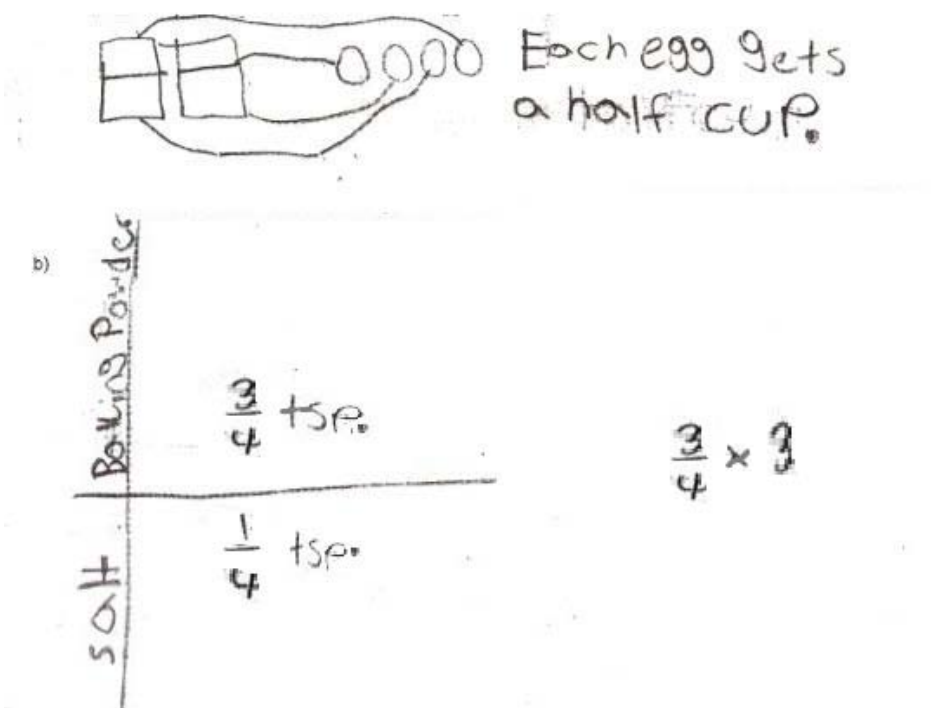 Each egg gets
a half cup.
b)
Baking Powder
3/4 tsp.
3/4 x 3
salt
1/4 tsp.